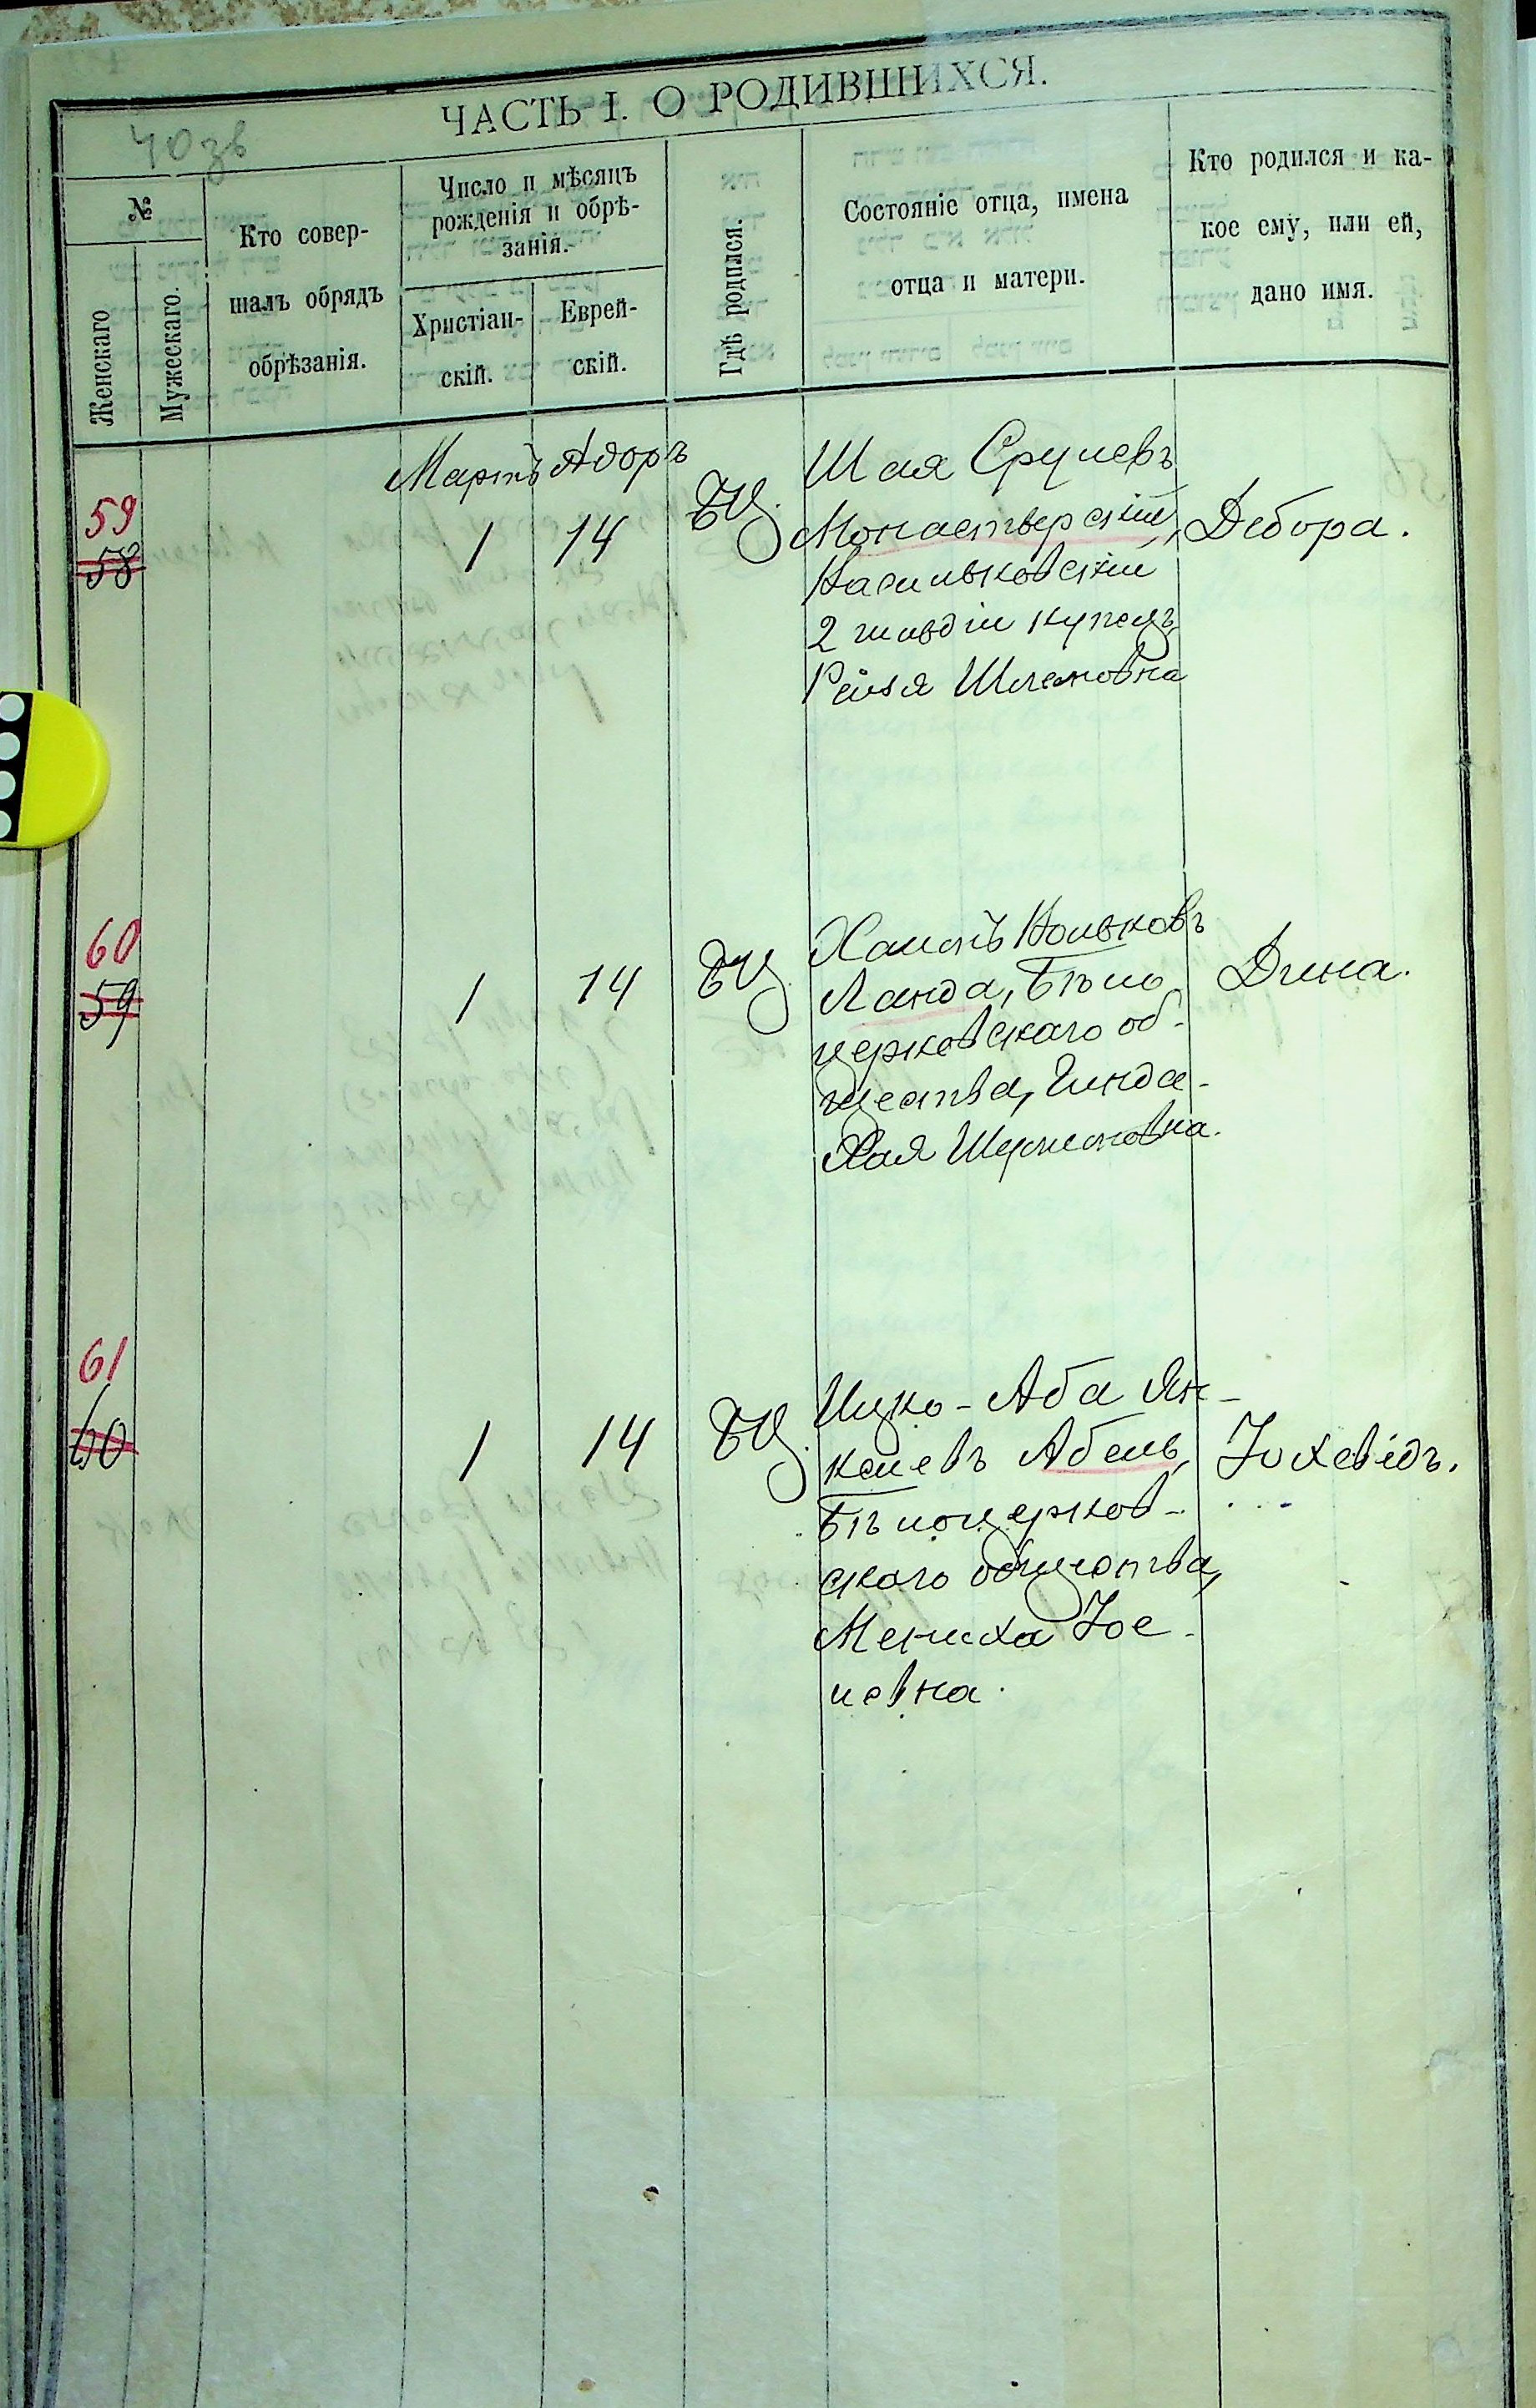 ЧАСТЬ I. О РОДИВШИХСЯ.
40зв
№
Женскаго
Мужескаго.
Кто совер-
шалъ обрядъ
обрѣзанія.
Число и мѣсяцъ
рожденія и обрѣ-
занія.
Христіан-
скій.
Еврей-
скій.
Гдѣ родился.
Состояніе отца, имена
отца и матери.
Кто родился и ка-
кое ему, или ей,
дано имя.
Мартъ Адоръ
59
58
1 14 БЦ.
Шая Срулевъ
Монастверскій,
Васильковскій
2 гильдіи купецъ
Рейзя Шлемовна
Дебора.
60
59
1 14 БЦ.
Ханонъ Волько́въ
Ланда, Бѣло
церковскаго об-
щества, Гинда-
Хая Шулимовна.
Дина.
61
60
1 14 БЦ.
Ицко-Аба Ян-
келевъ Абель,
Бѣлоцерков-
скаго общества,
Мениха Іое
левна.
Іохевідъ.